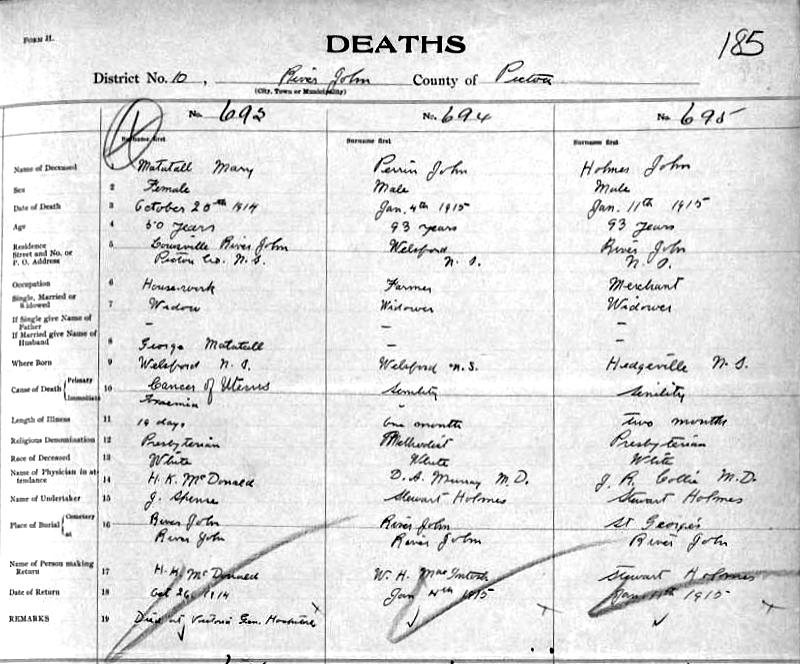 FORM H.
DEATHS
185
District No. 10, River John County of Pictou
(City, Town or Municipality)
No. 693 No. 694 No. 695
Surname first Surname first Surname first
Name of Deceased 1 Matatall Mary Perrin John Holmes John
Sex 2 Female Male Male
Date of Death 3 October 25th 1914 Jan. 4th 1915 Jan. 11th 1915
Age 4 50 years 93 years 93 years
Residence 5 Louisville River John Welsford River John
Street and No. or
P. O. Address Pictou Co. N. S. N. S. N. S.
Occupation 6 Housework Farmer Merchant
Single, Married or
Widowed 7 Widow Widower Widower
If Single give Name of
Father – – –
If Married give Name of
Husband 8 George Matatall – –
Where Born 9 Welsford N. S. Welsford N. S. Hedgeville N. S.
Cause of Death Primary 10 Cancer of Uterus Senility Senility
Immediate
Length of Illness 11 19 days One month Two months
Religious Denomination 12 Presbyterian Methodist Presbyterian
Race of Deceased 13 White White White
Name of Physician in at-
tendance 14 H. K. McDonald D. A. Murray M. D. J. R. Collie M. D.
Name of Undertaker 15 J. Spense Stewart Holmes Stewart Holmes
Place of Burial Cemetery 16 River John River John St Georges
at River John River John River John
Name of Person making
Return 17 H. K. McDonald W. H. MacIntosh Stewart Holmes
Date of Return 18 Oct 26, 1914 Jan 4th 1915 Jan 11th 1915
REMARKS 19 Died at Victoria Gen. Hospital